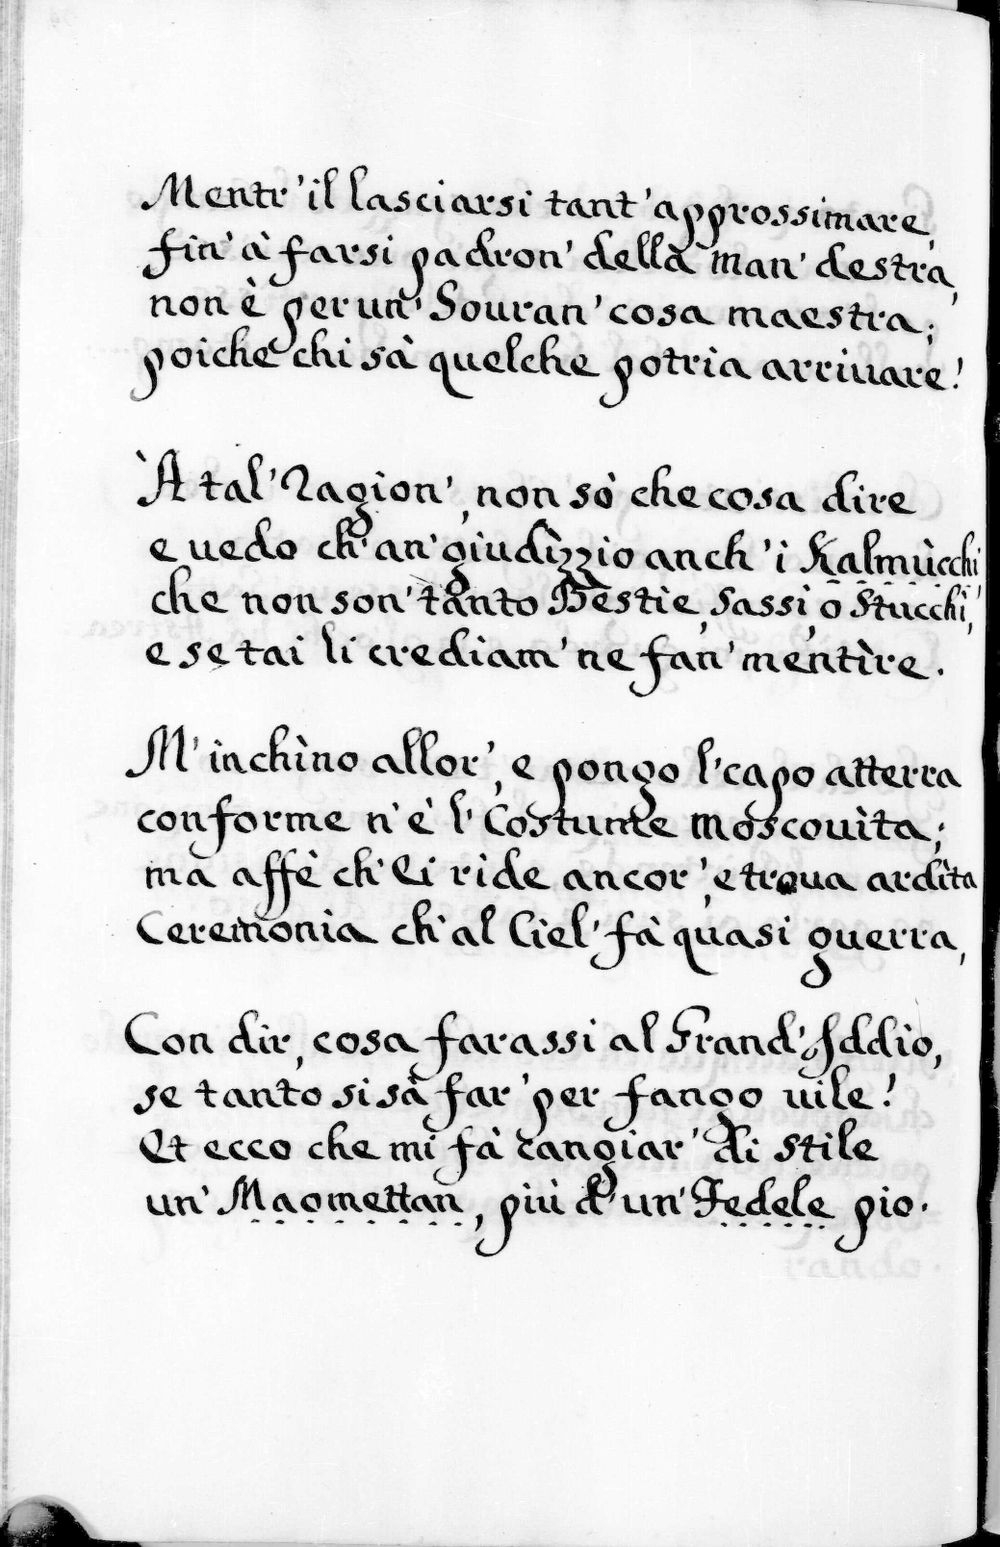 Mentr' il lasciarsi tant' approssimare,
fin' à farsi padron' della man' destra,
non è per un' Souran' cosa maestra;
poiche chi sà quelche potria arriuare!
À tal' Ragion', non sò che cosa dire
e uedo ch' an' giudizzio anch' i Kalmùcchi
che non son' tanto Bestie, Sassi, o Stucchi,
e se tai li crediam' ne fan' mentìre.
M' inchìno allor', e pongo l' capo atterra
conforme n' è l' Costume Moscouìta;
ma affè ch' Ei ride ancor', e troua ardìta
Ceremonia ch' al Cìel' fà quasi guerra,
Con dir, cosa farassi al Grand' Iddìo,
se tanto si sà far' per fango uile!
Et ecco che mi fà cangiar' di stile
un' Maomettan, più d' un' Fedele pio.